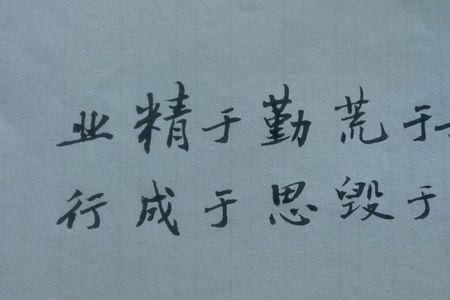 业精于勤荒于
行成于思毁于